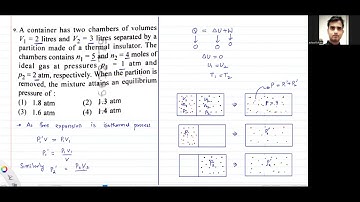 A container has two chambers of volumes
V₁ = 2 litres and V₂ = 3 litres separated by a
partition made of a thermal insulator. The
chambers contains n₁ = 5 and n₂ = 4 moles of
ideal gas at pressures p₁ = 1 atm and
p₂ = 2 atm, respectively. When the partition is
removed, the mixture attains an equilibrium
pressure of :
(1) 1.8 atm (2) 1.3 atm
(3) 1.6 atm (4) 1.4 atm
→ As free expansion is isothermal process
P₁'V = P₁V₁
P₁' = P₁V₁
V
Similarly P₂' = P₂V₂
Q = ΔU + W
0 0 0
ΔU = 0
U₁ = U₂
T₁ = T₂
P = P₁' + P₂'